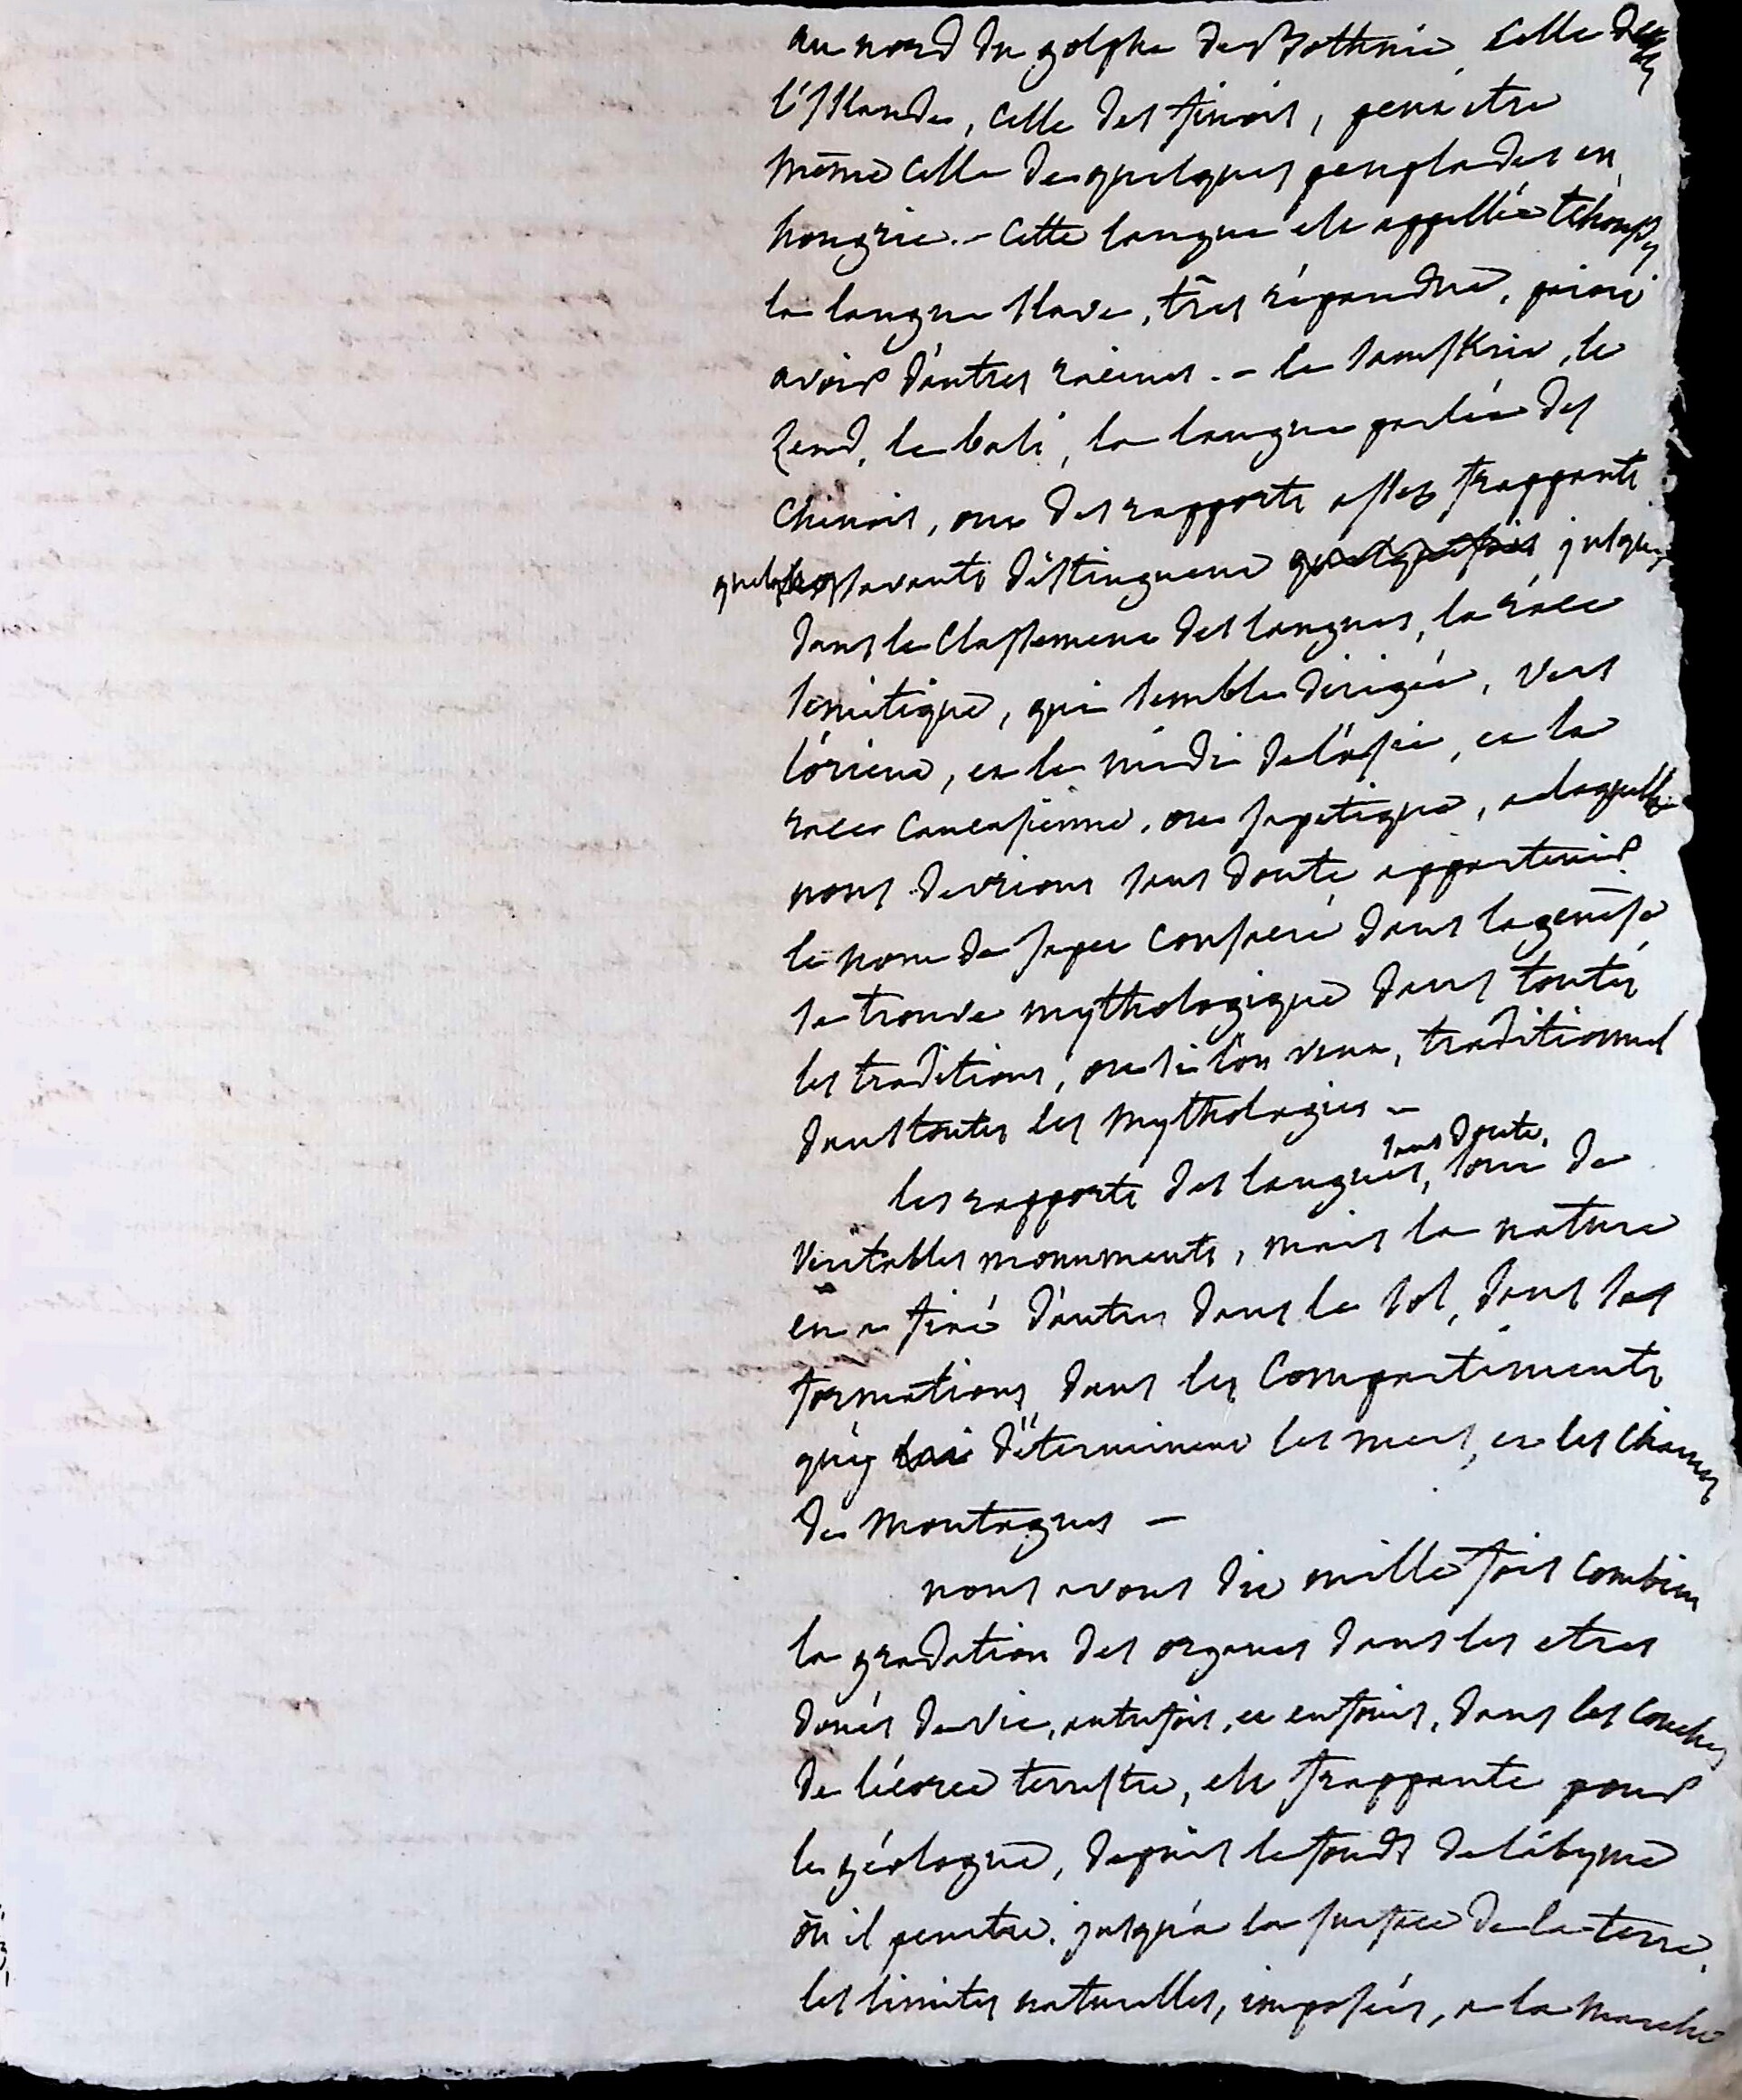 au nord du golphe de Bothnie, celle de
l'islande, celle des finois, peut etre
même celle de quelques peuplades en
hongrie. – cette langue est appellée
la langue slave, très répandue, parait
avoir d'autres racines. – le samskrit, le
zend, le bali, la langue parlée des
chinois, ont des rapports assez frappants
quelques savants distinguent quelquefois jusques
dans le classement des langues, la race
semitique, qui semble dirigée, vers
l'orient, et le midi de l'asie, et la
race caucasienne, ou japetique, a laquelle
nous devrions sans doute appartenir.
le nom de japet consacré dans la genèse
se trouve mythologique dans toutes
les traditions, ou si l'on veut, traditionnel
dans toutes les mythologies –
sans doute,
les rapports des langues, sont de
veritables monuments, mais la nature
en a fixé d'autres dans le sol, dans ses
formations, dans les compartiments
qu'y déterminent les mers, et les chaines
de montagnes –
nous avons dit mille fois combien
la gradation des organes dans les etres
doués de vie, autrefois, et enfouis, dans les couches
de l'écorce terrestre, est frappante pour
le géologue, depuis le fonds de l'abyme
où il penetre, jusqu'a la surface de la terre.
les limites naturelles, imposées, a la marche